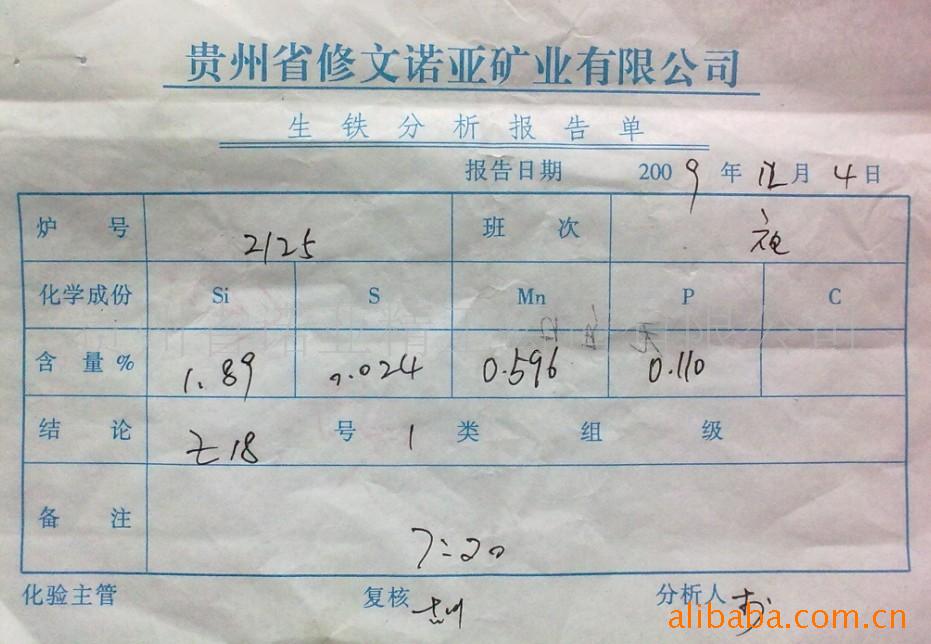 贵州省修文诺亚矿业有限公司
生铁分析报告单
报告日期 2009年12月4日
炉号 2125 班次
化学成份 Si S Mn P C
含量% 1.89 0.024 0.596 0.110
结论 Z18 号 1 类 组 级
备注 7:20
化验主管 复核 分析人
alibaba.com.cn